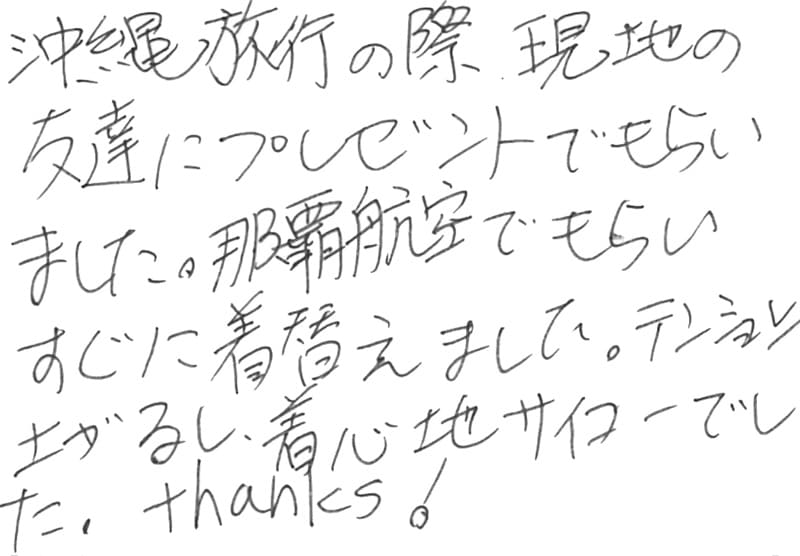 沖縄旅行の際 現地の
友達にプレゼントでもらい
ました。那覇航空でもらい
すぐに着替えました。テンション
上がるし、着心地サイコーでし
た。thanks!